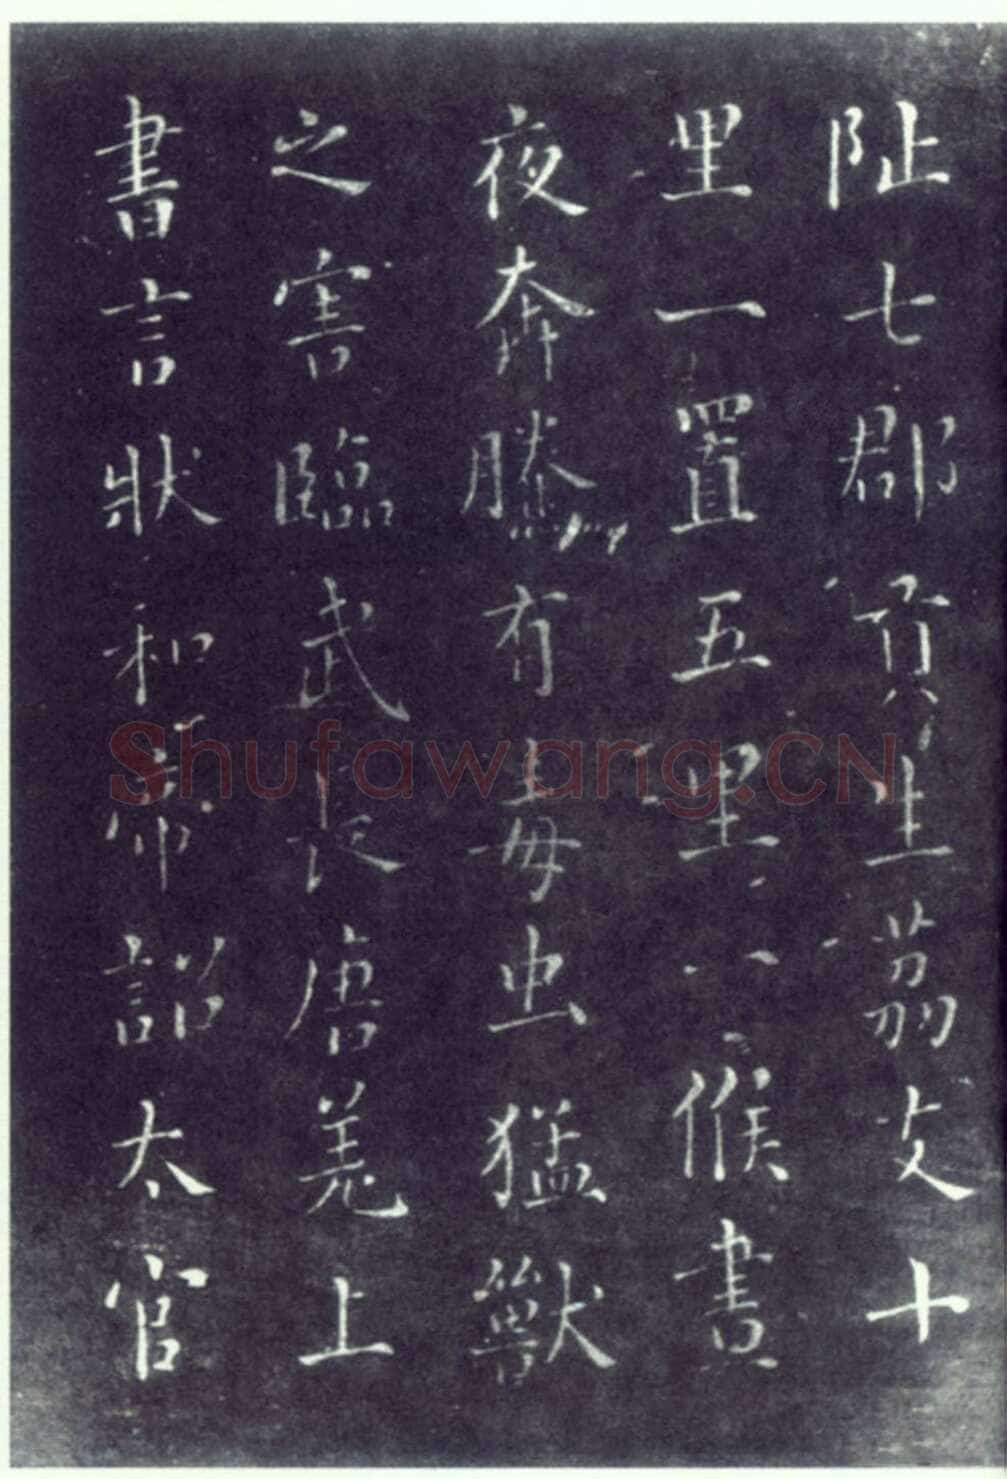 阯七郡貢生茘支十
里一置五里一候晝
夜奔騰有毒虫猛獸
之害臨武長唐羌上
書言狀和帝詔太官
Shufawang.CN